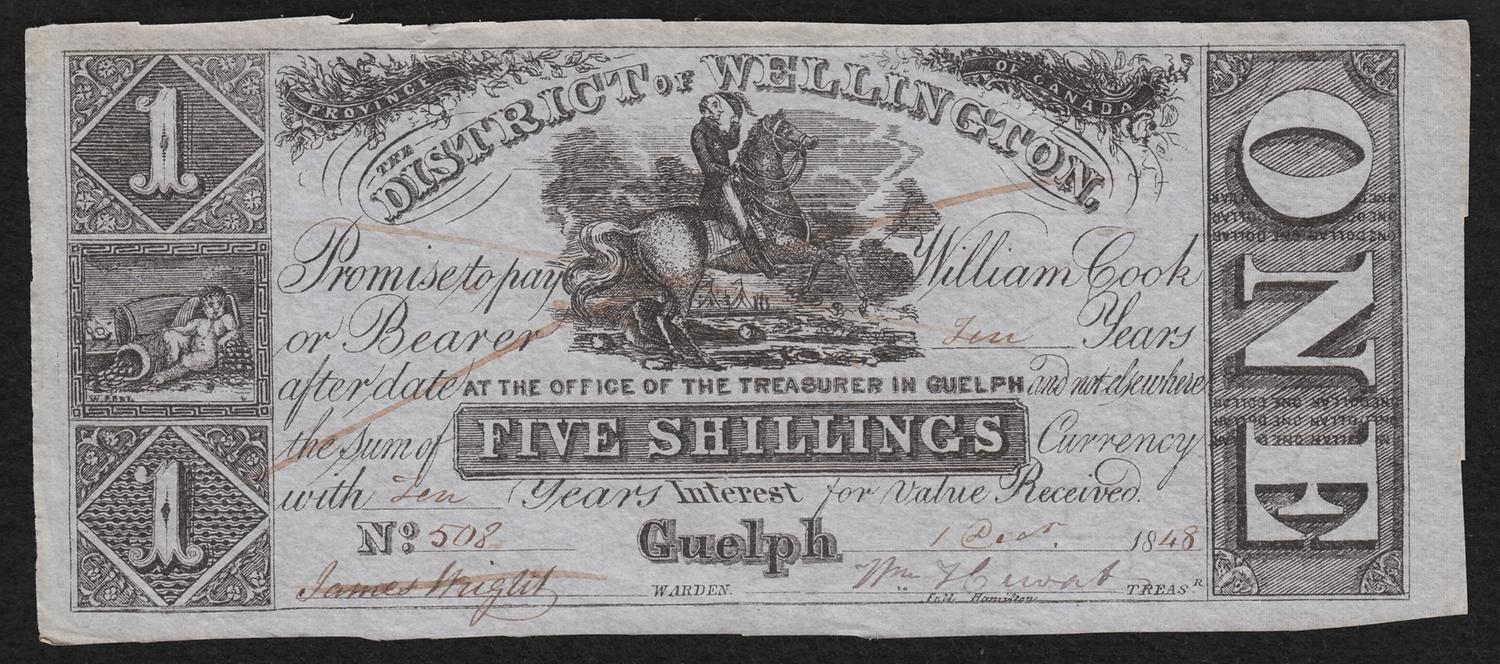 PROVINCE OF CANADA
THE DISTRICT OF WELLINGTON.
1
ONE
Promise to pay William Cook
or Bearer Ten Years
after date AT THE OFFICE OF THE TREASURER IN GUELPH and not elsewhere
the sum of FIVE SHILLINGS Currency
with Ten Years Interest for Value Received.
No: 508 Guelph 1 Decr. 1848
James Wright WARDEN. Wm Hewat TREASR
Hamilton
1
ONE DOLLAR
ONE DOLLAR